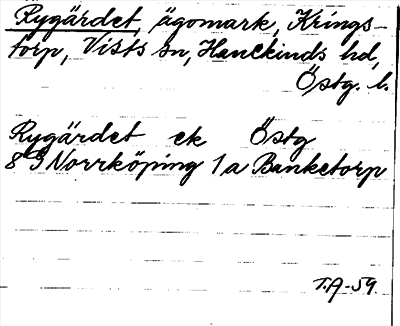 Rygärdet, ägomark, Krings-
torp, Vists sn, Hanekinds hd,
Östg. l.
Rygärdet ek Östg
8 G Norrköping 1 a Banketorp
T.A-59